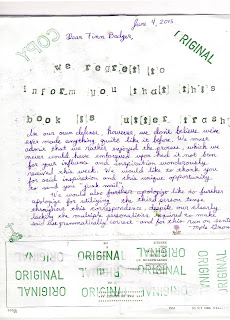 June 4, 2015
COPY
Dear Finn Badger,
ORIGINAL
we regret to
inform you that this
book is utter trash
In our own defense, however, we don't believe we've
ever made anything quite like it before. We must
admit that we rather enjoyed the process, which we
never would have embarked upon had it not been
for your influence and inspiration wondrously
received this week. We would like to thank you
for said inspiration and this unique opportunity
to send you "junk mail".
We would also further apologize like to further
apologize for utilizing the third person tense
throughout this correspondence despite our clearly
lacking the multiple personalities required to make
said use grammatically correct - and for this run on sentence
ORIGINAL ORIGINAL
ORIGINAL ORIGINAL ORIGINAL
ORIGINAL
ORIGINAL ORIGINAL ORIGINAL